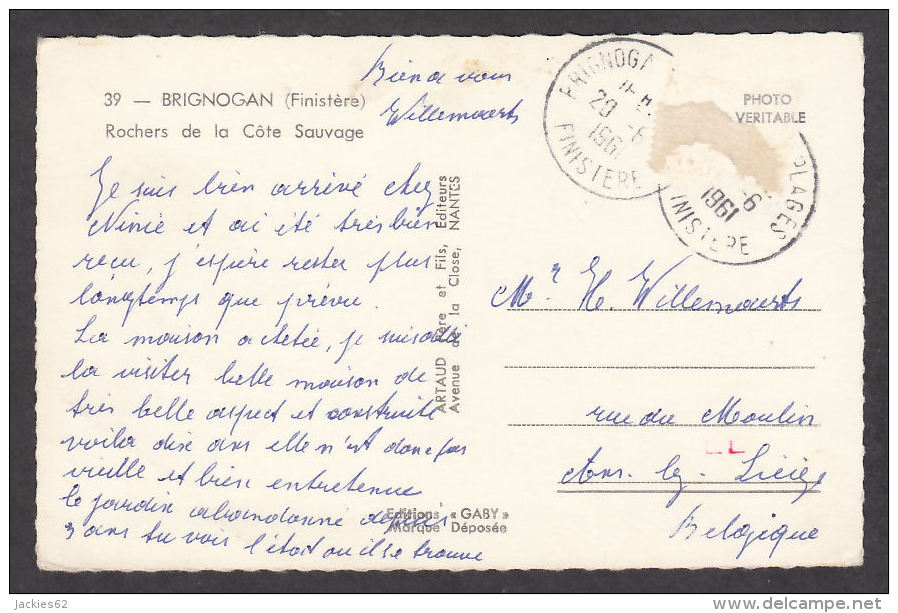 39 — BRIGNOGAN (Finistère)
Rochers de la Côte Sauvage
Bien a vous
Willemaerts
Je suis bien arrivé chez
Ninie et ai été très bien
recu, j'espère rester plus
longtemps que prévu.
La maison achetée, je suis allé
la visiter belle maison de
très belle aspect et construite
voila dix ans elle n'est donc pas
vieille et bien entretenue
le jardin abandonné depuis
3 ans tu vois l'état ou il se trouve
ARTAUD Père et Fils, Editeurs
Avenue de la Close, NANTES
Editions « GABY »
Marque Déposée
PHOTO
VERITABLE
BRIGNOGA
20 -6
1961
FINISTERE
PLAGES
-6
1961
INISTERE
Mr H. Willemaerts
rue du Moulin
Ans. lez. Liége
Belgique
jackies62
delcampe.net